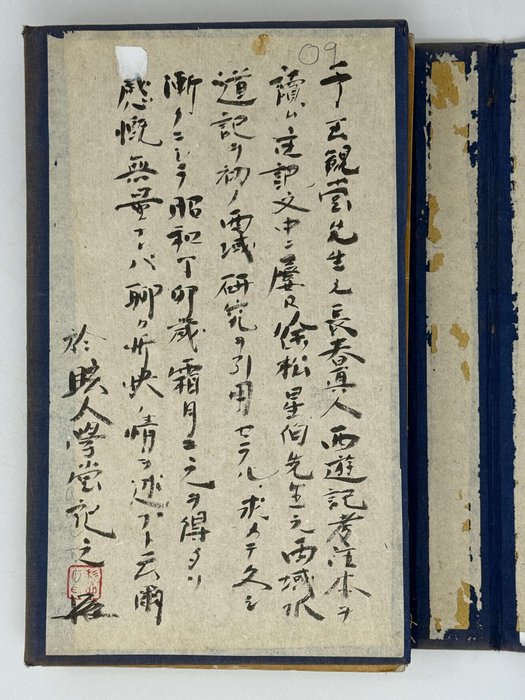 09
予王觀堂先生之長春真人西遊記考注本ヲ
讀ム注記文中ニ屡々徐松星伯先生之西域水
道記ヲ初メ西域研究ヲ引用セラル、求メテ久シ
漸クニシテ昭和丁卯歳霜月ニ之ヲ得タリ
感慨無量ナレバ聊カ ノ情ヲ述ブト云爾
於 人學堂記之